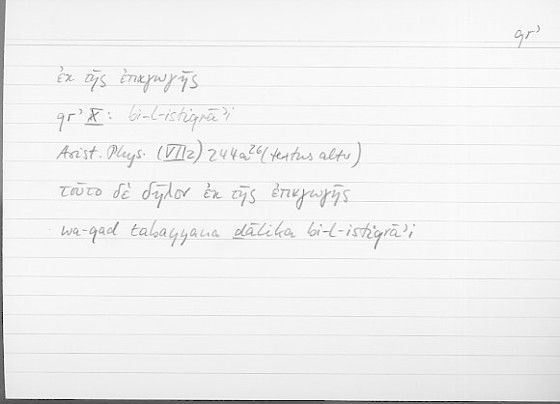 qrʾ
ἐκ τῆς ἐπαγωγῆς
qrʾ X: bi-l-istiqrāʾi
Arist. Phys. (VII 2) 244a26 (textus alter)
τοῦτο δὲ δῆλον ἐκ τῆς ἐπαγωγῆς
wa-qad tabayyana ḏālika bi-l-istiqrāʾi